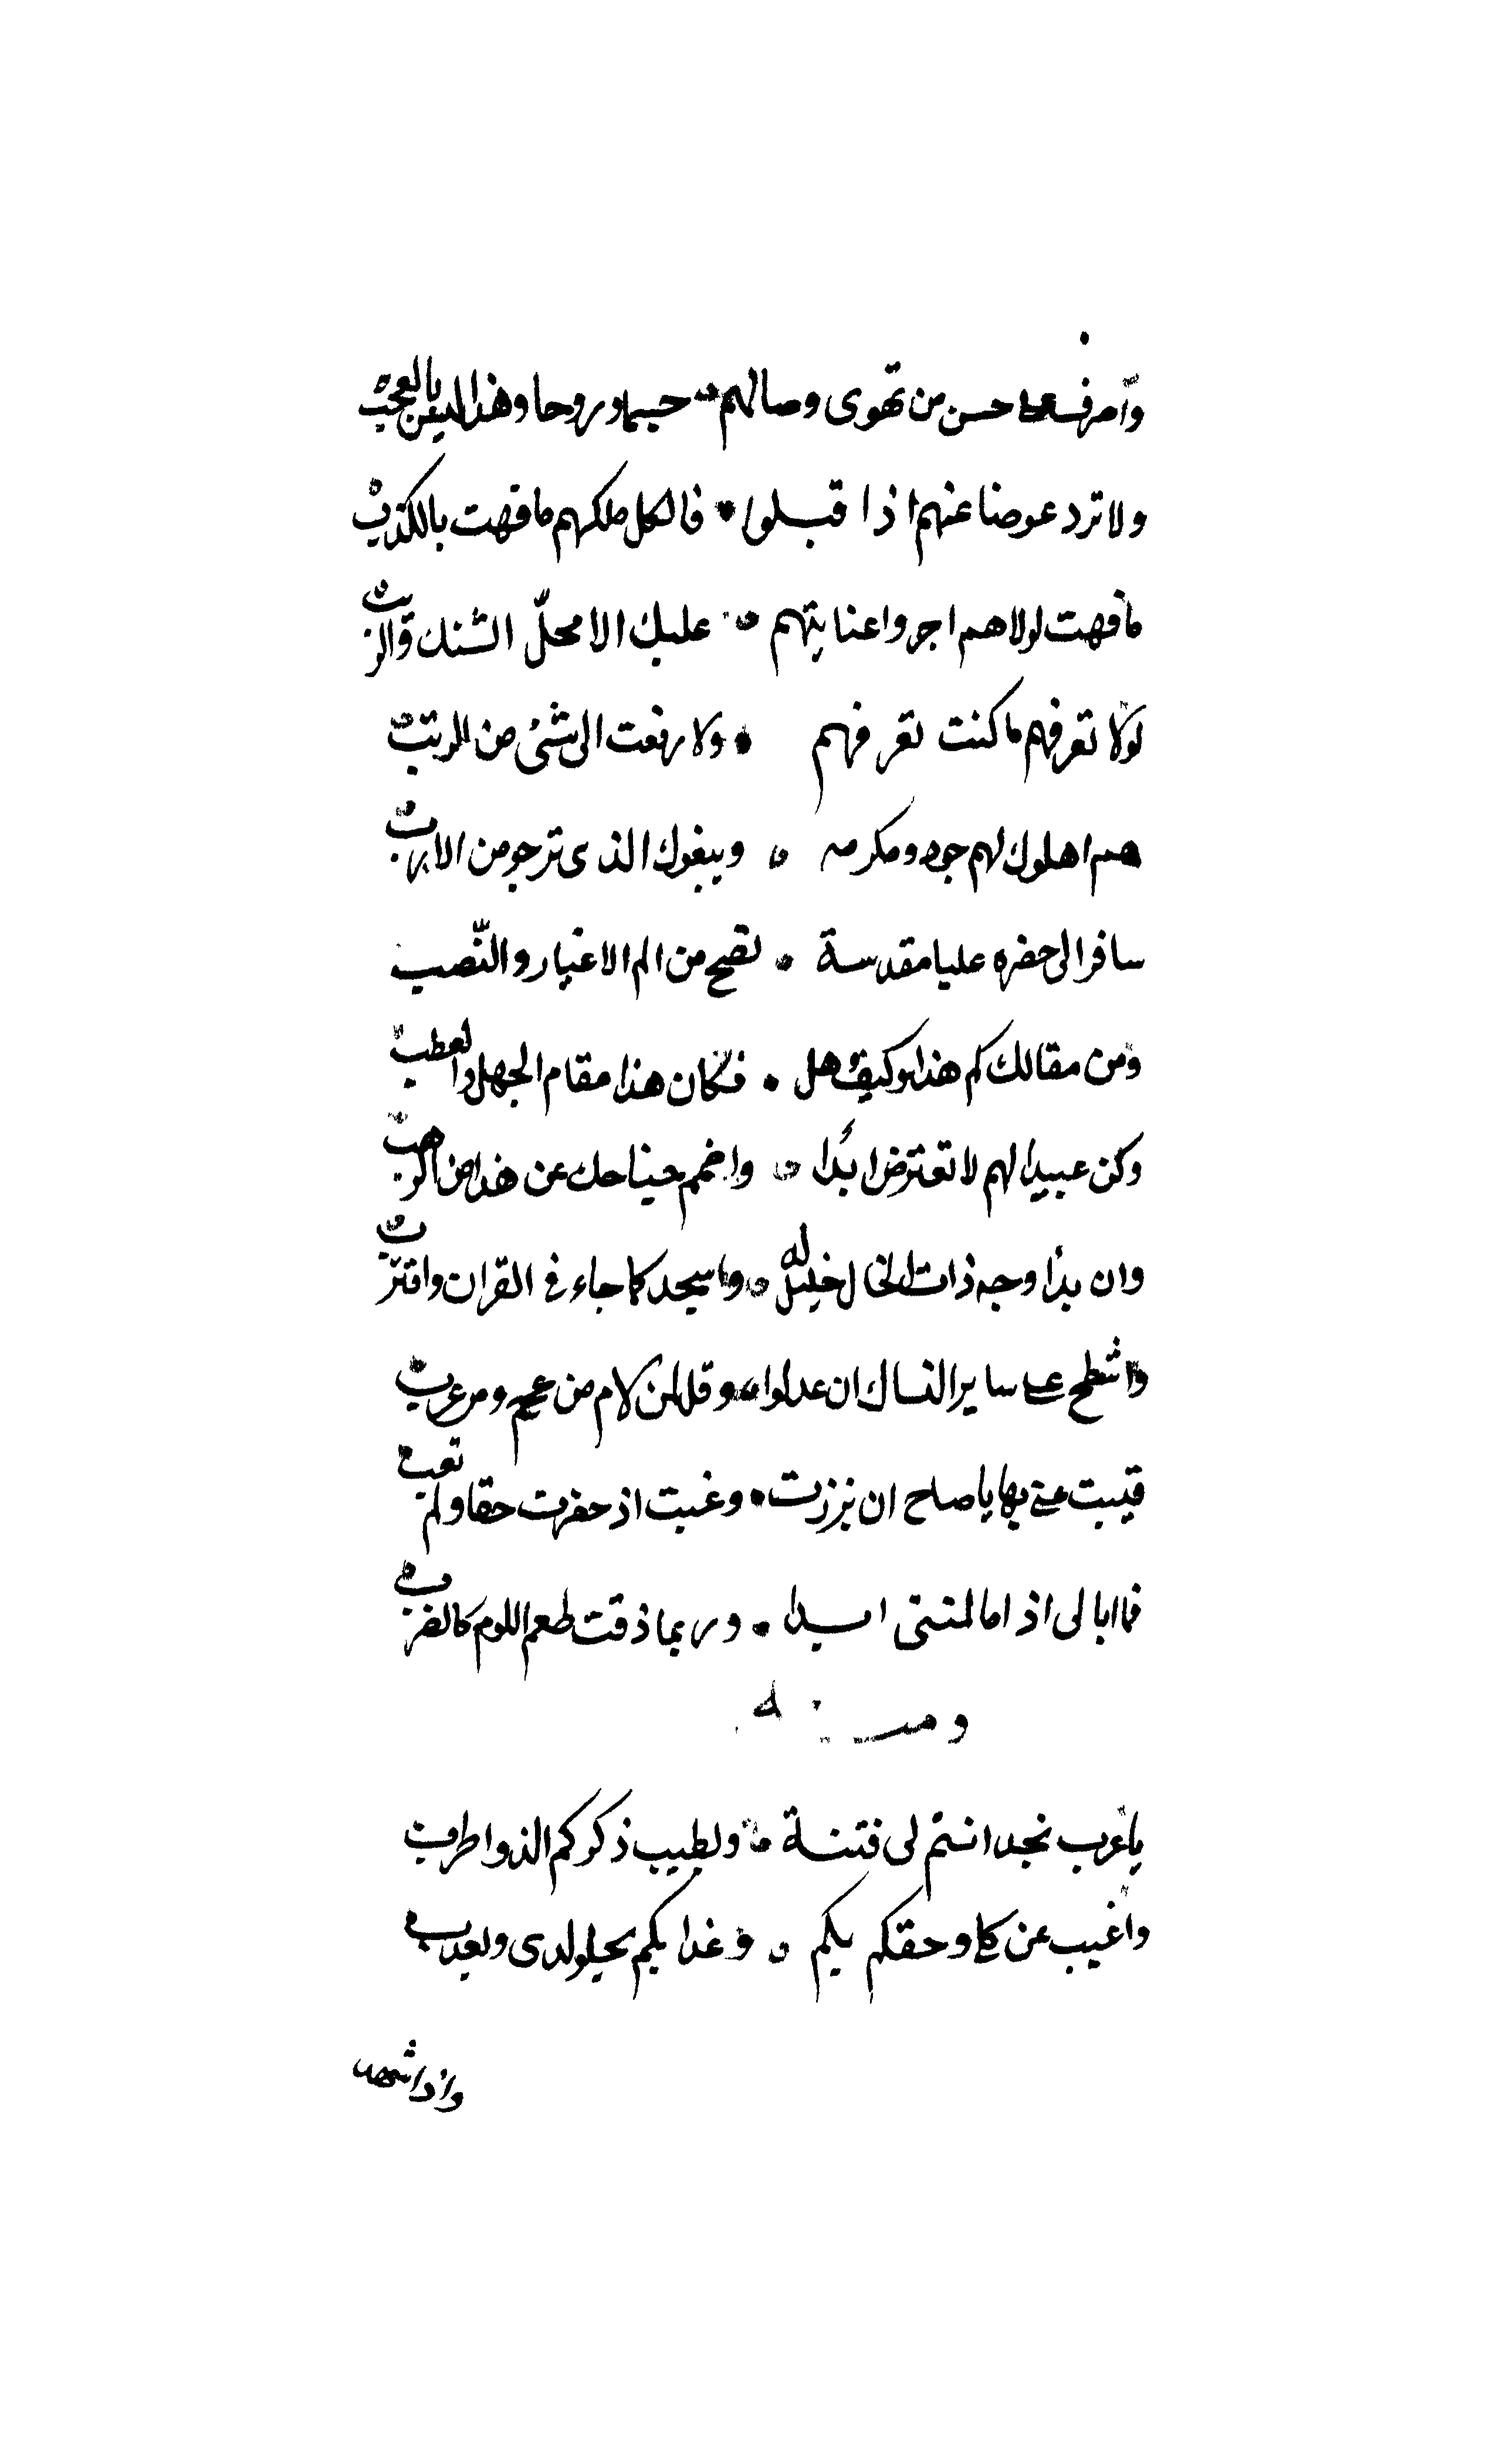 واصرف على حسن من تهوى وصالهم جسما وروحا وهذا ليس بالعجب
ولا ترد عوضا عنهم اذا قبلوا فالكل ملكهم ما فهت بالكذب
ما فهت لولا هم اجروا عنايتهم عليك الا محلّ الشك والريب
لولا تعرفهم ما كنت تعرفهم ولا رفعت الى شئ من الرتب
هم اهلوك لهم جود ومكرمه ويبغوك الذى ترجو من الارب
سافر الى حضره عليا مقدسة تصح من الم الاغيار والنّصب
ومن مقالك كم هذا وكيف هل فكان هذا مقام الجهل والعطب
وكن عبيدا لهم لا تعترض ابدا واضمم جناحك عن هذا من الرهب
وان بدا وجه ذات الخال خيل له واسجد كما جاء فى القران واقترب
واشطح على ساير النساك ان عدلوا وقل لمن لام من عجم ومن عرب
فتبت عنى بها يا صاح ان برزت وغبت اذ حضرت حقا ولم تغب
فما ابالى اذا ما لمتنى ابدا وربما ذقت طعم اللوم كالضرب
ومنه
يا عرب نجد انتم لى فتنة وبطيب ذكركم الذ واطرب
واغيب عن كلى وحقكم بكم وغدا بكم يحلو لدى ويعذب
واذا شهد